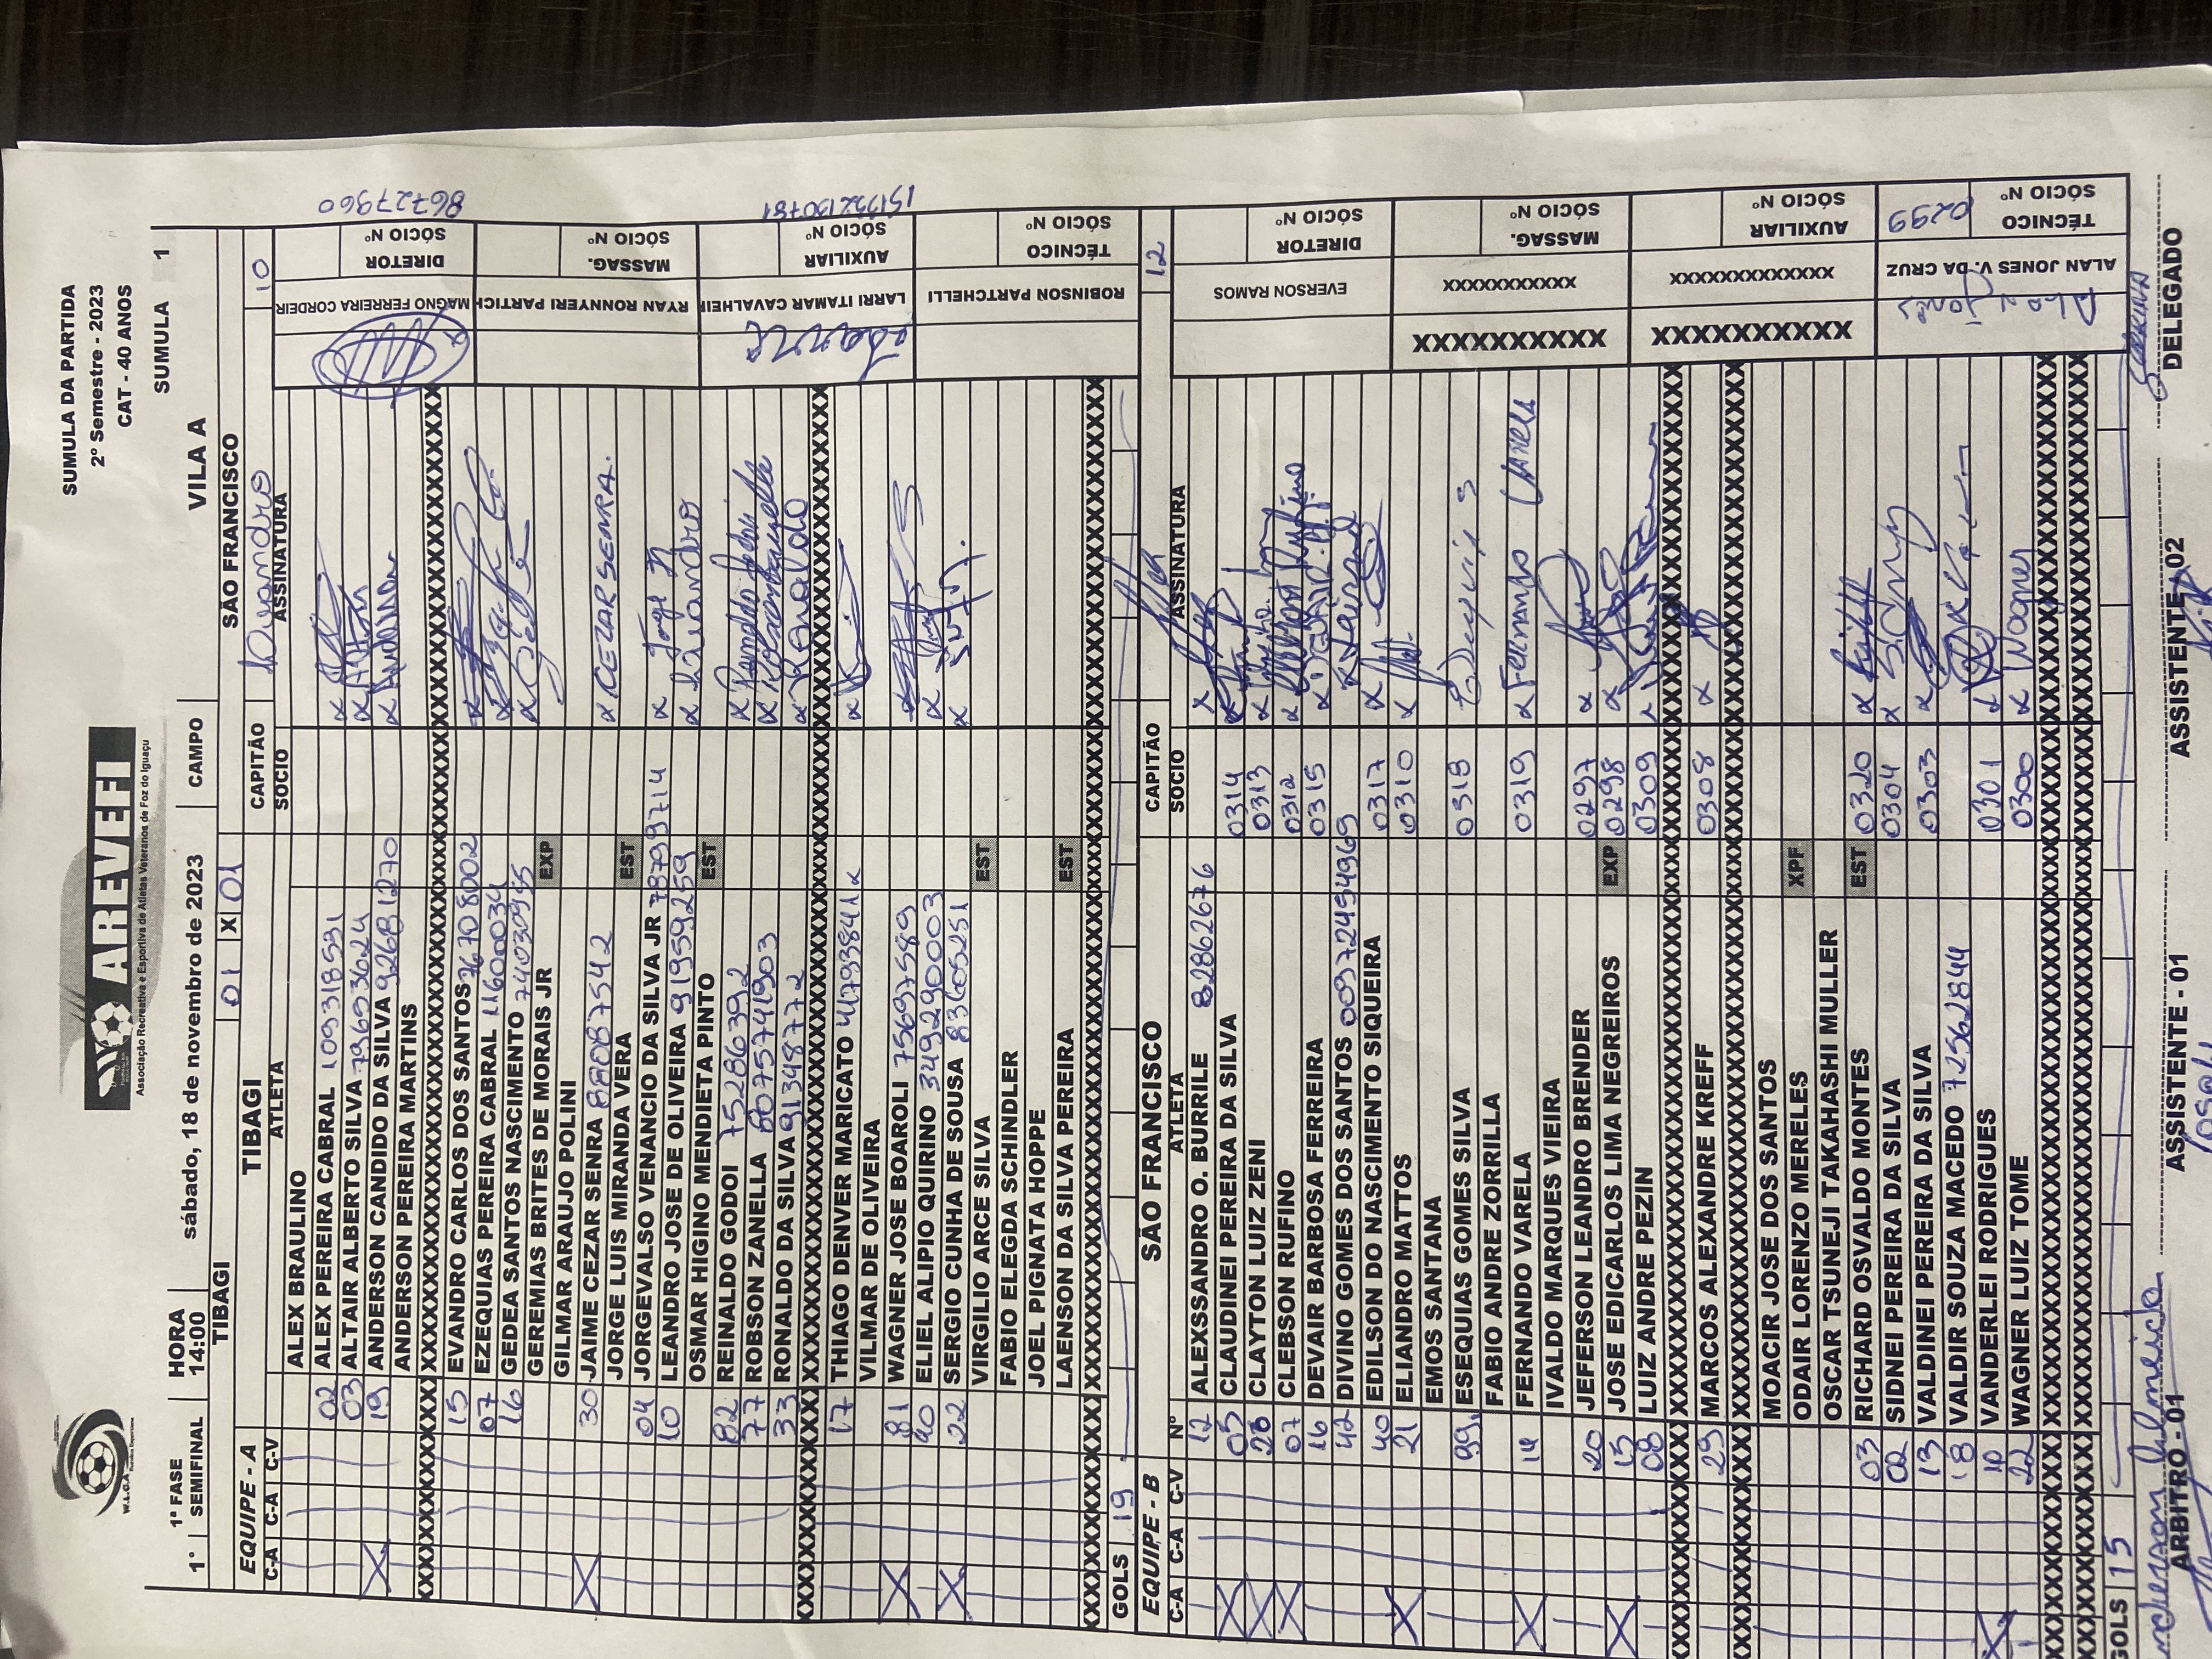 SUMULA DA PARTIDA
2º Semestre - 2023
CAT - 40 ANOS
W.L.C.A
AREVEFI
Associação Recreativa e Esportiva de Atletas Veteranos de Foz do Iguaçu
1° 1ª FASE SEMIFINAL HORA 14:00 sábado, 18 de novembro de 2023 CAMPO VILA A SUMULA 1
TIBAGI 01 X 01 SÃO FRANCISCO
EQUIPE - A TIBAGI CAPITÃO 10
C-A C-A C-V ATLETA SOCIO ASSINATURA
ALEX BRAULINO
02 ALEX PEREIRA CABRAL 109318531
03 ALTAIR ALBERTO SILVA 73693624
19 ANDERSON CANDIDO DA SILVA 92681270
ANDERSON PEREIRA MARTINS
15 EVANDRO CARLOS DOS SANTOS 76708002
07 EZEQUIAS PEREIRA CABRAL 11600034
16 GEDEA SANTOS NASCIMENTO 74030955
GEREMIAS BRITES DE MORAIS JR EXP
GILMAR ARAUJO POLINI
30 JAIME CEZAR SENRA 88087542 CEZAR SENRA.
JORGE LUIS MIRANDA VERA EST
04 JORGEVALSO VENANCIO DA SILVA JR 78797714 Jorge Jr
10 LEANDRO JOSE DE OLIVEIRA 91959259 Leandro
OSMAR HIGINO MENDIETA PINTO EST
82 REINALDO GODOI 75286392
77 ROBSON ZANELLA 8075741903
33 RONALDO DA SILVA 91348772 Ronaldo
17 THIAGO DENVER MARICATO
VILMAR DE OLIVEIRA
81 WAGNER JOSE BOAROLI 75697589
90 ELIEL ALIPIO QUIRINO 349290003
22 SERGIO CUNHA DE SOUSA 83605251
VIRGILIO ARCE SILVA EST
FABIO ELEGDA SCHINDLER
JOEL PIGNATA HOPPE
LAENSON DA SILVA PEREIRA EST
GOLS 19
MAGNO FERREIRA CORDEIR DIRETOR SÓCIO Nº 86727960
RYAN RONNYERI PARTICH MASSAG. SÓCIO Nº
LARRI ITAMAR CAVALHEIR AUXILIAR SÓCIO Nº
ROBINSON PARTCHELLI TÉCNICO SÓCIO Nº
EQUIPE - B SÃO FRANCISCO CAPITÃO 12
C-A C-A C-V Nº ATLETA SOCIO ASSINATURA
12 ALEXSSANDRO O. BURRILE 82862676
05 CLAUDINEI PEREIRA DA SILVA 0314
CLAYTON LUIZ ZENI 0313
07 CLEBSON RUFINO 0312
16 DEVAIR BARBOSA FERREIRA 0315
42 DIVINO GOMES DOS SANTOS
40 EDILSON DO NASCIMENTO SIQUEIRA 0317
21 ELIANDRO MATTOS 0310
EMOS SANTANA
99 ESEQUIAS GOMES SILVA 0318
FABIO ANDRE ZORRILLA
14 FERNANDO VARELA 0319 Fernando Varela
IVALDO MARQUES VIEIRA
20 JEFERSON LEANDRO BRENDER 0297
15 JOSE EDICARLOS LIMA NEGREIROS EXP 0298
08 LUIZ ANDRE PEZIN 0309
29 MARCOS ALEXANDRE KREFF 0308
MOACIR JOSE DOS SANTOS
ODAIR LORENZO MERELES XPF
OSCAR TSUNEJI TAKAHASHI MULLER
03 RICHARD OSVALDO MONTES EST 0320
02 SIDNEI PEREIRA DA SILVA 0304
13 VALDINEI PEREIRA DA SILVA 0303
18 VALDIR SOUZA MACEDO 72562844
10 VANDERLEI RODRIGUES 0301
22 WAGNER LUIZ TOME 0300 Wagner
GOLS 15
EVERSON RAMOS DIRETOR SÓCIO Nº
XXXXXXXXXX XXXXXXXXXXX MASSAG. SÓCIO Nº
XXXXXXXXXX XXXXXXXXXXXX AUXILIAR SÓCIO Nº
ALAN JONES V. DA CRUZ TÉCNICO SÓCIO Nº 0299
Anderson Almeida
ARBITRO - 01 ASSISTENTE - 01 ASSISTENTE, 02 DELEGADO